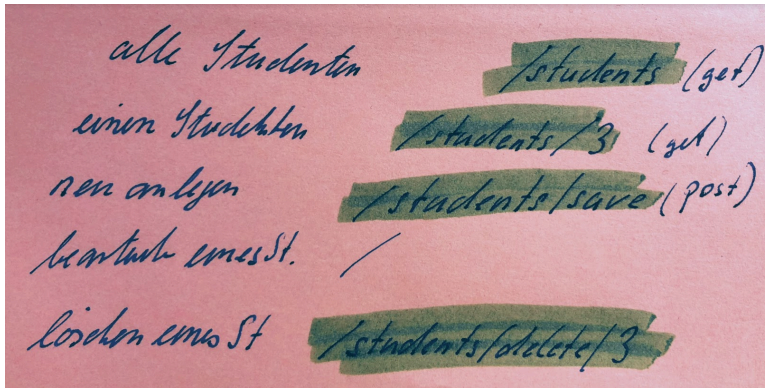 alle Studenten /students (get)
einen Studenten /students/3 (get)
neu anlegen /students/save (post)
eines St. /
löschen eines St /students/delete/3